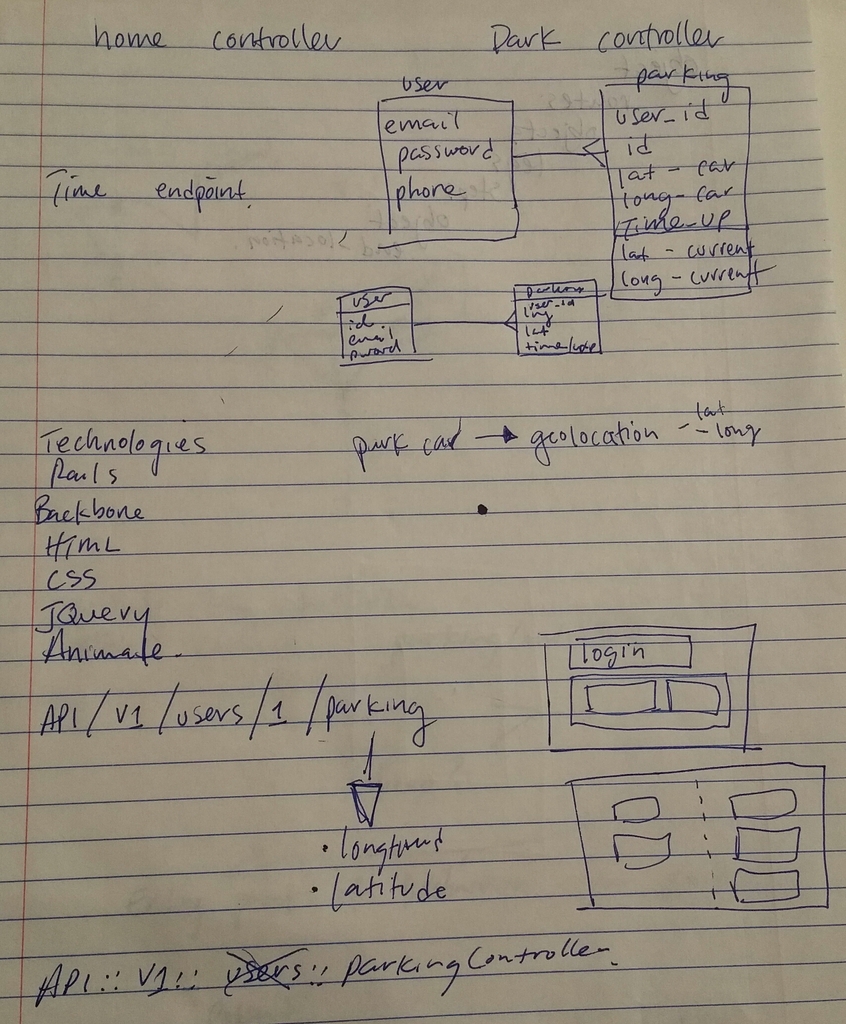 home controller
Dark controller
user
email
password
phone
parking
user_id
id
lat - car
long - car
Time_up
lat - current
long - current
Time endpoint.
user
id
email
pword
user_id
lng
lat
Technologies
Rails
Backbone
HTML
CSS
JQuery
Animate.
park car → geolocation - lat
- long
login
API / V1 / users / 1 / parking
• latitude
API :: V1 :: users :: parkingController.